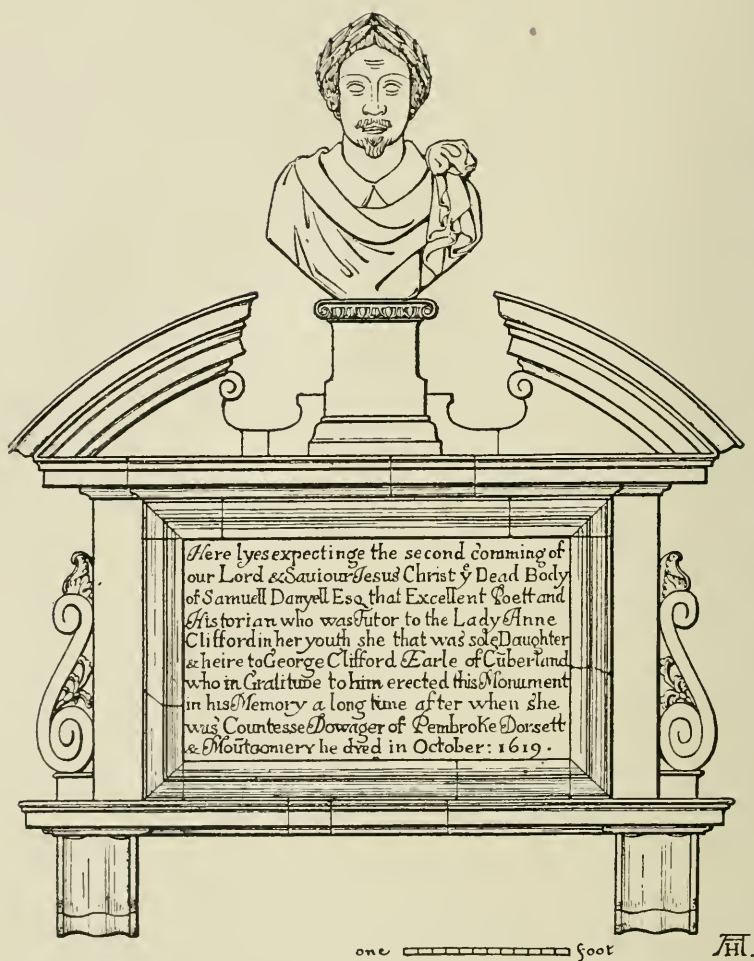 Here lyes expectinge the second comming of
our Lord & Saviour Jesus Christ yᵉ Dead Body
of Samuell Danyell Esq. that Excellent Poett and
Historian who was Tutor to the Lady Anne
Clifford in her youth she that was sole Daughter
& heire to George Clifford Earle of Cüberland
who in Gratitude to him erected this Monument
in his Memory a long time after when she
was Countesse Dowager of Pembroke Dorsett
& Mountgomery he dyed in October: 1619.
one foot